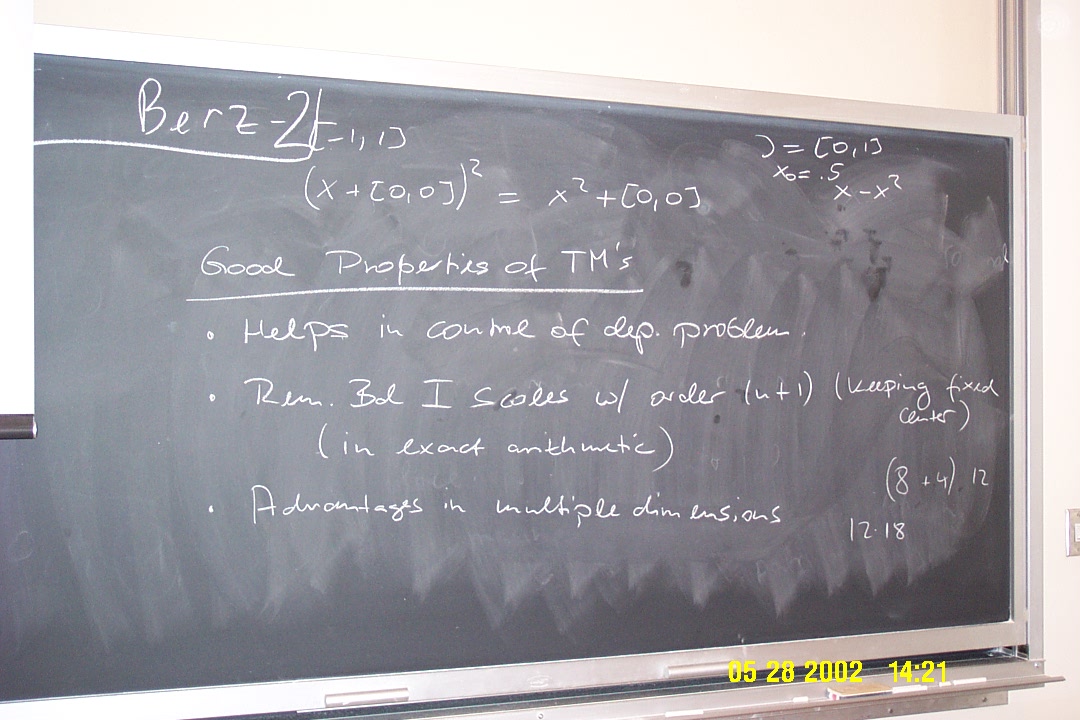 Berz-2
[-1,1]
(x+[0,0])² = x²+[0,0]
) = [0,1]
x₀=.5
x-x²
Good Properties of TM's
• Helps in control of dep. problem.
• Rem. Bd I scales w/ order (n+1) (keeping fixed
center)
(in exact arithmetic)
(8+4) 12
• Advantages in multiple dimensions
12·18
05 28 2002 14:21